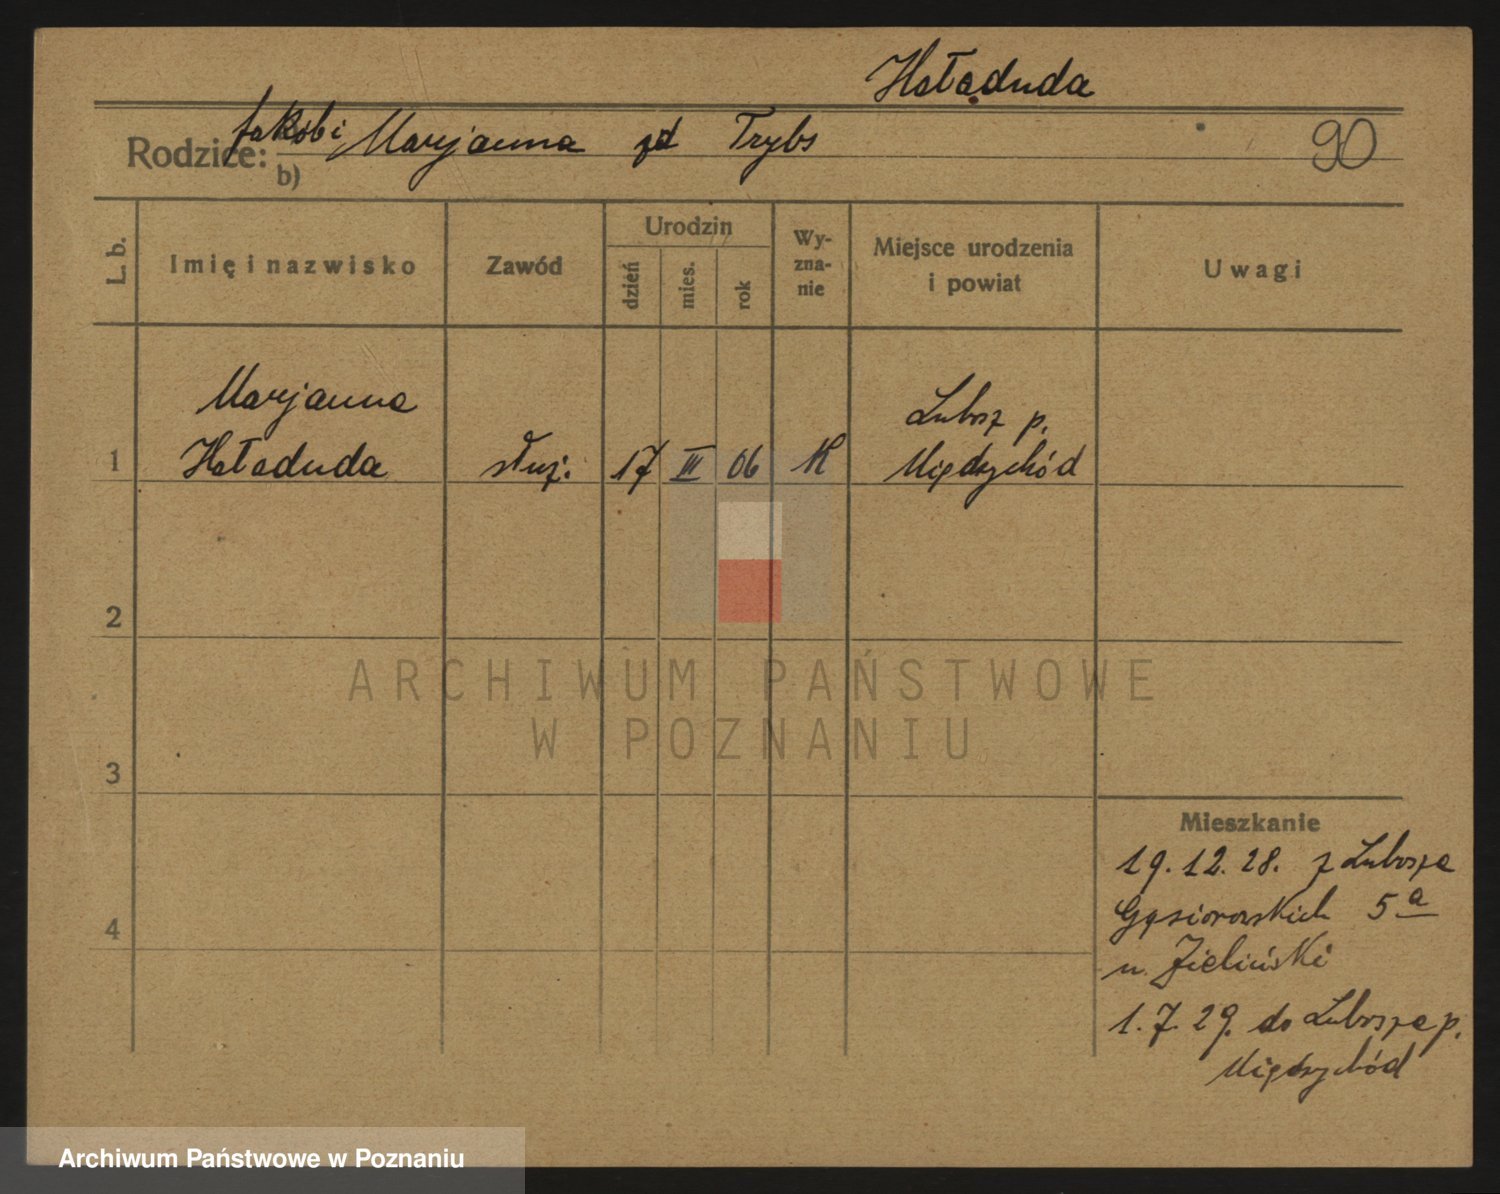 Hoładuda
Rodzice: Jakób i Marjanna zd Trybs
b)
90
L. b.
Imię i nazwisko
Zawód
Urodzin
dzień
mies.
rok
Wy-
zna-
nie
Miejsce urodzenia
i powiat
Uwagi
1
Marjanna
Hoładuda
służ.
17
III
06
K
Lubosz p.
Międzychód
2
3
4
ARCHIWUM PAŃSTWOWE
W POZNANIU
Mieszkanie
19.12.28. z Lubosza
Gąsiorowskich 5a
u. Zieliński
1.7.29. do Lubosza p.
Międzychód
Archiwum Państwowe w Poznaniu